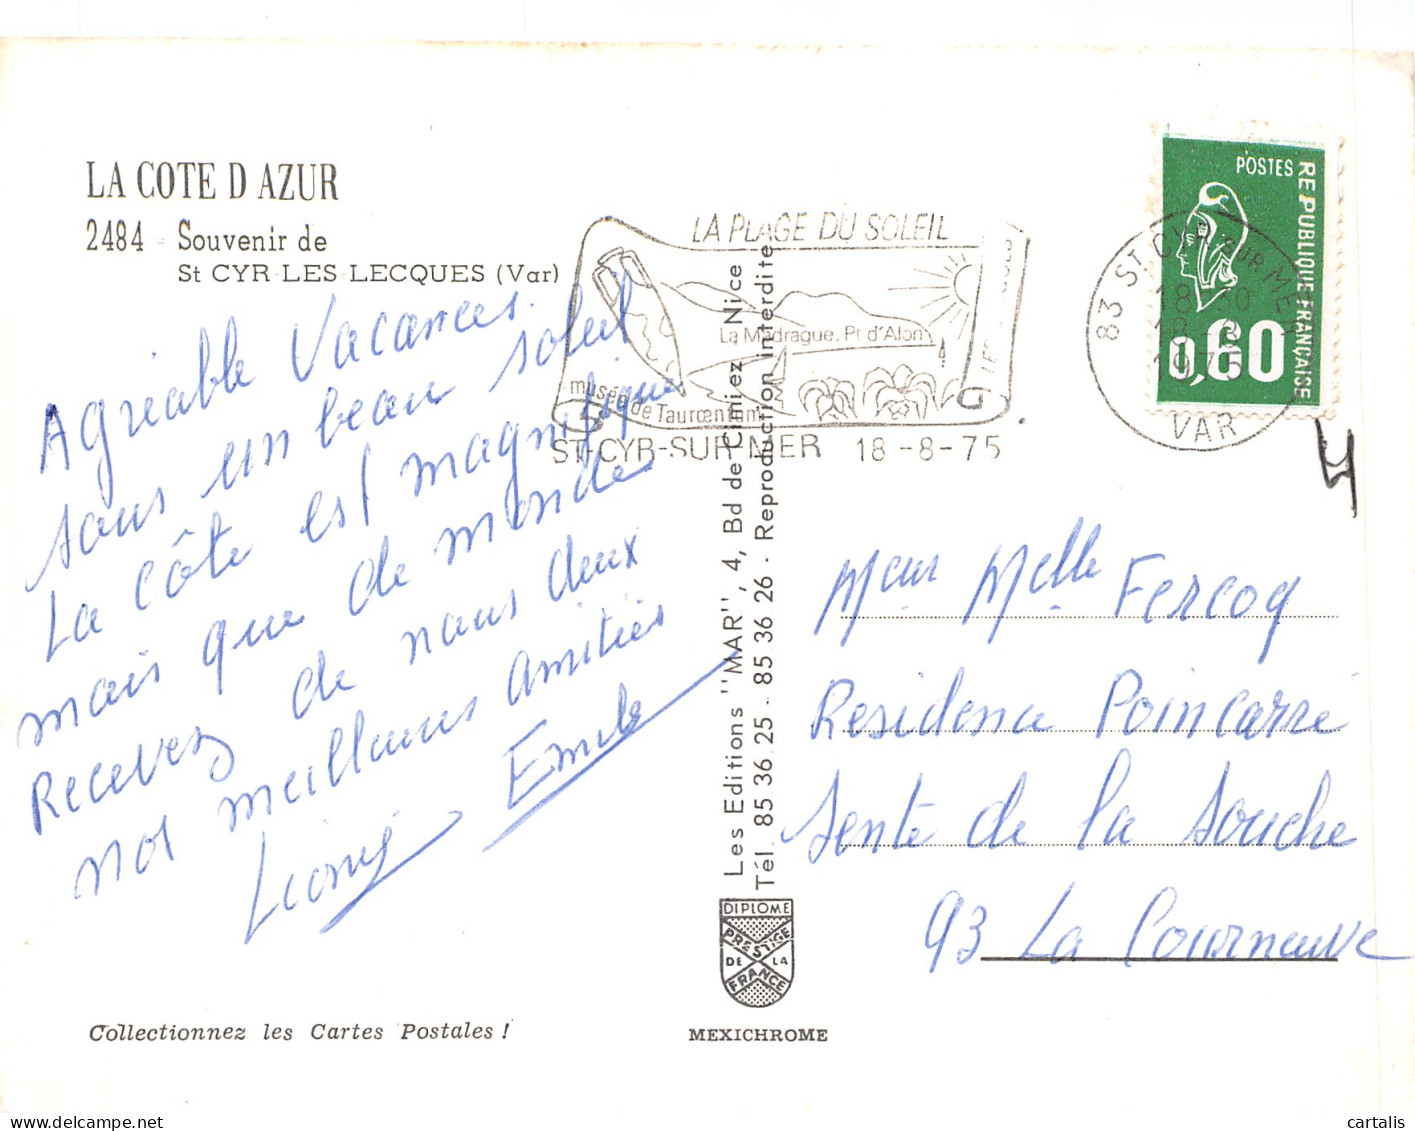 LA COTE D AZUR
2484 - Souvenir de
St CYR-LES-LECQUES (Var)
Agreable Vacances.
sous un beau soleil
La côte est magnifique
mais que de monde
Recevez de nous deux
nos meilleures amitiés
Emile
Collectionnez les Cartes Postales !
LA PLAGE DU SOLEIL
La Madrague. Pt d'Alon
musée de Tauroentum
ST-CYR-SUR-MER 18-8-75
Les Editions "MAR", 4, Bd de Cimiez, Nice
Tél. 85 36 25 - 85 36 26 - Reproduction interdite
DIPLOME
PRESTIGE
DE LA
FRANCE
MEXICHROME
POSTES
REPUBLIQUE FRANÇAISE
0,60
83 ST CYR SUR MER
18-8
1975
VAR
Meur Melle Fercoq
Residence Poincarré
Sente de la Souche
93 La Courneuve
cartalis